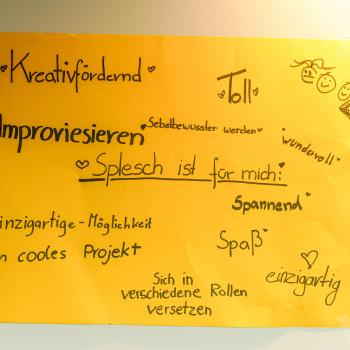 Kreativfördernd
Toll
Improviesieren
Sebstbewusster werden
"wundervoll"
Splesch ist für mich:
Spannend
inzigartige-Möglichkeit
n cooles Projekt
Spaß
einzigartig
Sich in
verschiedene Rollen
versetzen